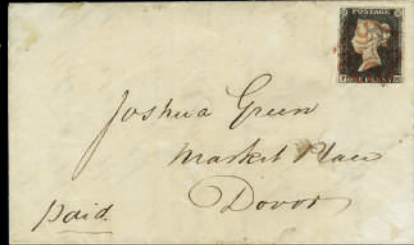 POSTAGE
ONE PENNY
Joshua Green
Market Place
Dover
paid